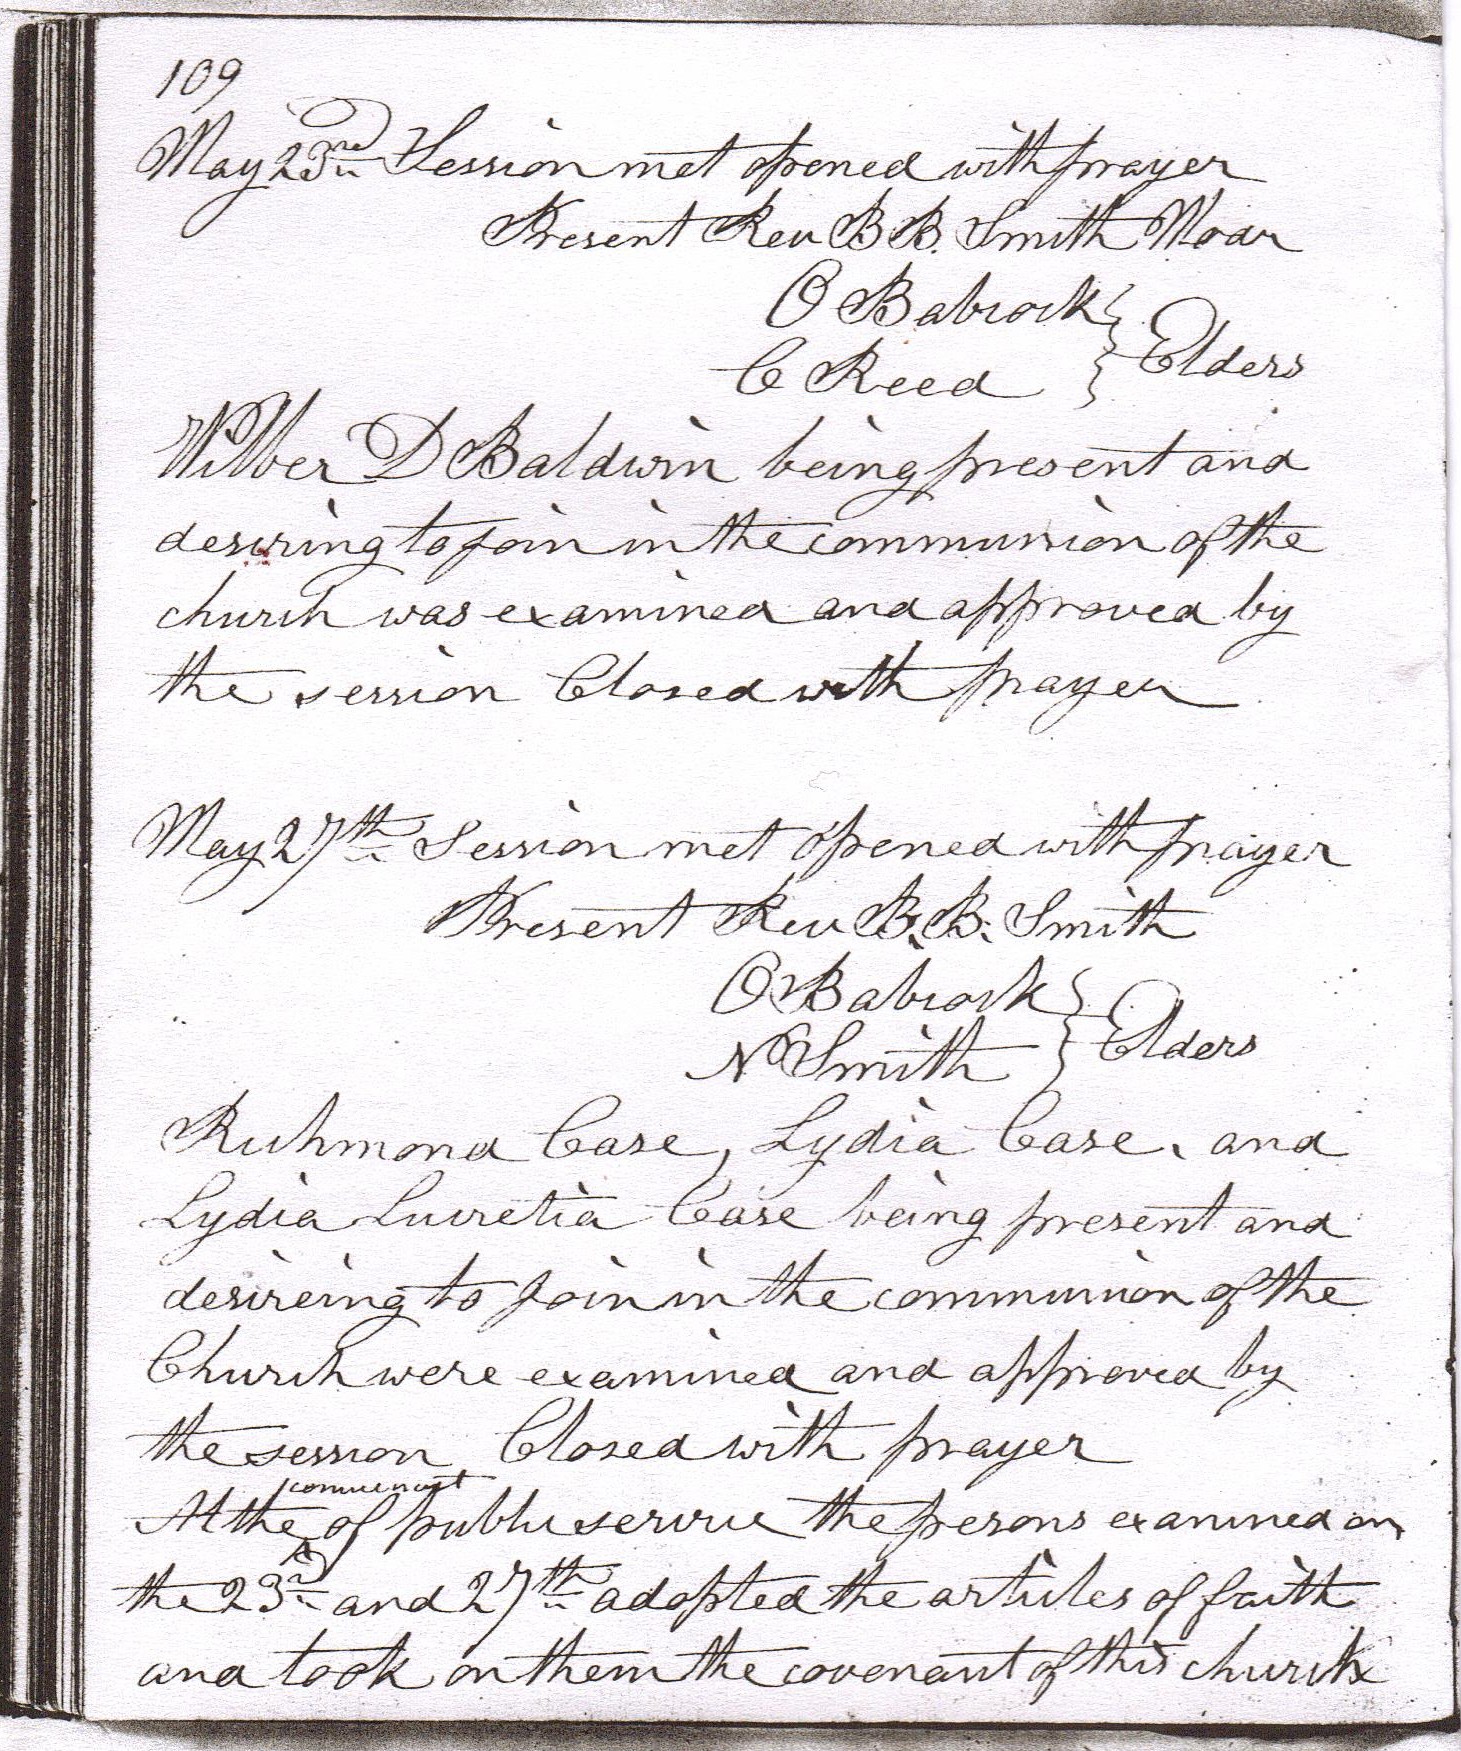 109
May 23rd Session met opened with prayer
Present Rev B B. Smith Modr
O Babcock } Elders
C Reed
Wilber D Baldwin being present and
desiring to join in the communion of the
church was examined and approved by
the session Closed with prayer
May 27th Session met opened with prayer
Present Rev B. B. Smith
O Babcock } Elders
N Smith
Richmond Case, Lydia Case, and
Lydia Lucretia Case being present and
desireing to join in the communion of the
Church were examined and approved by
the session Closed with prayer
At the of public service the persons examined on
the 23rd and 27th adopted the articles of faith
and took on them the covenant of this church